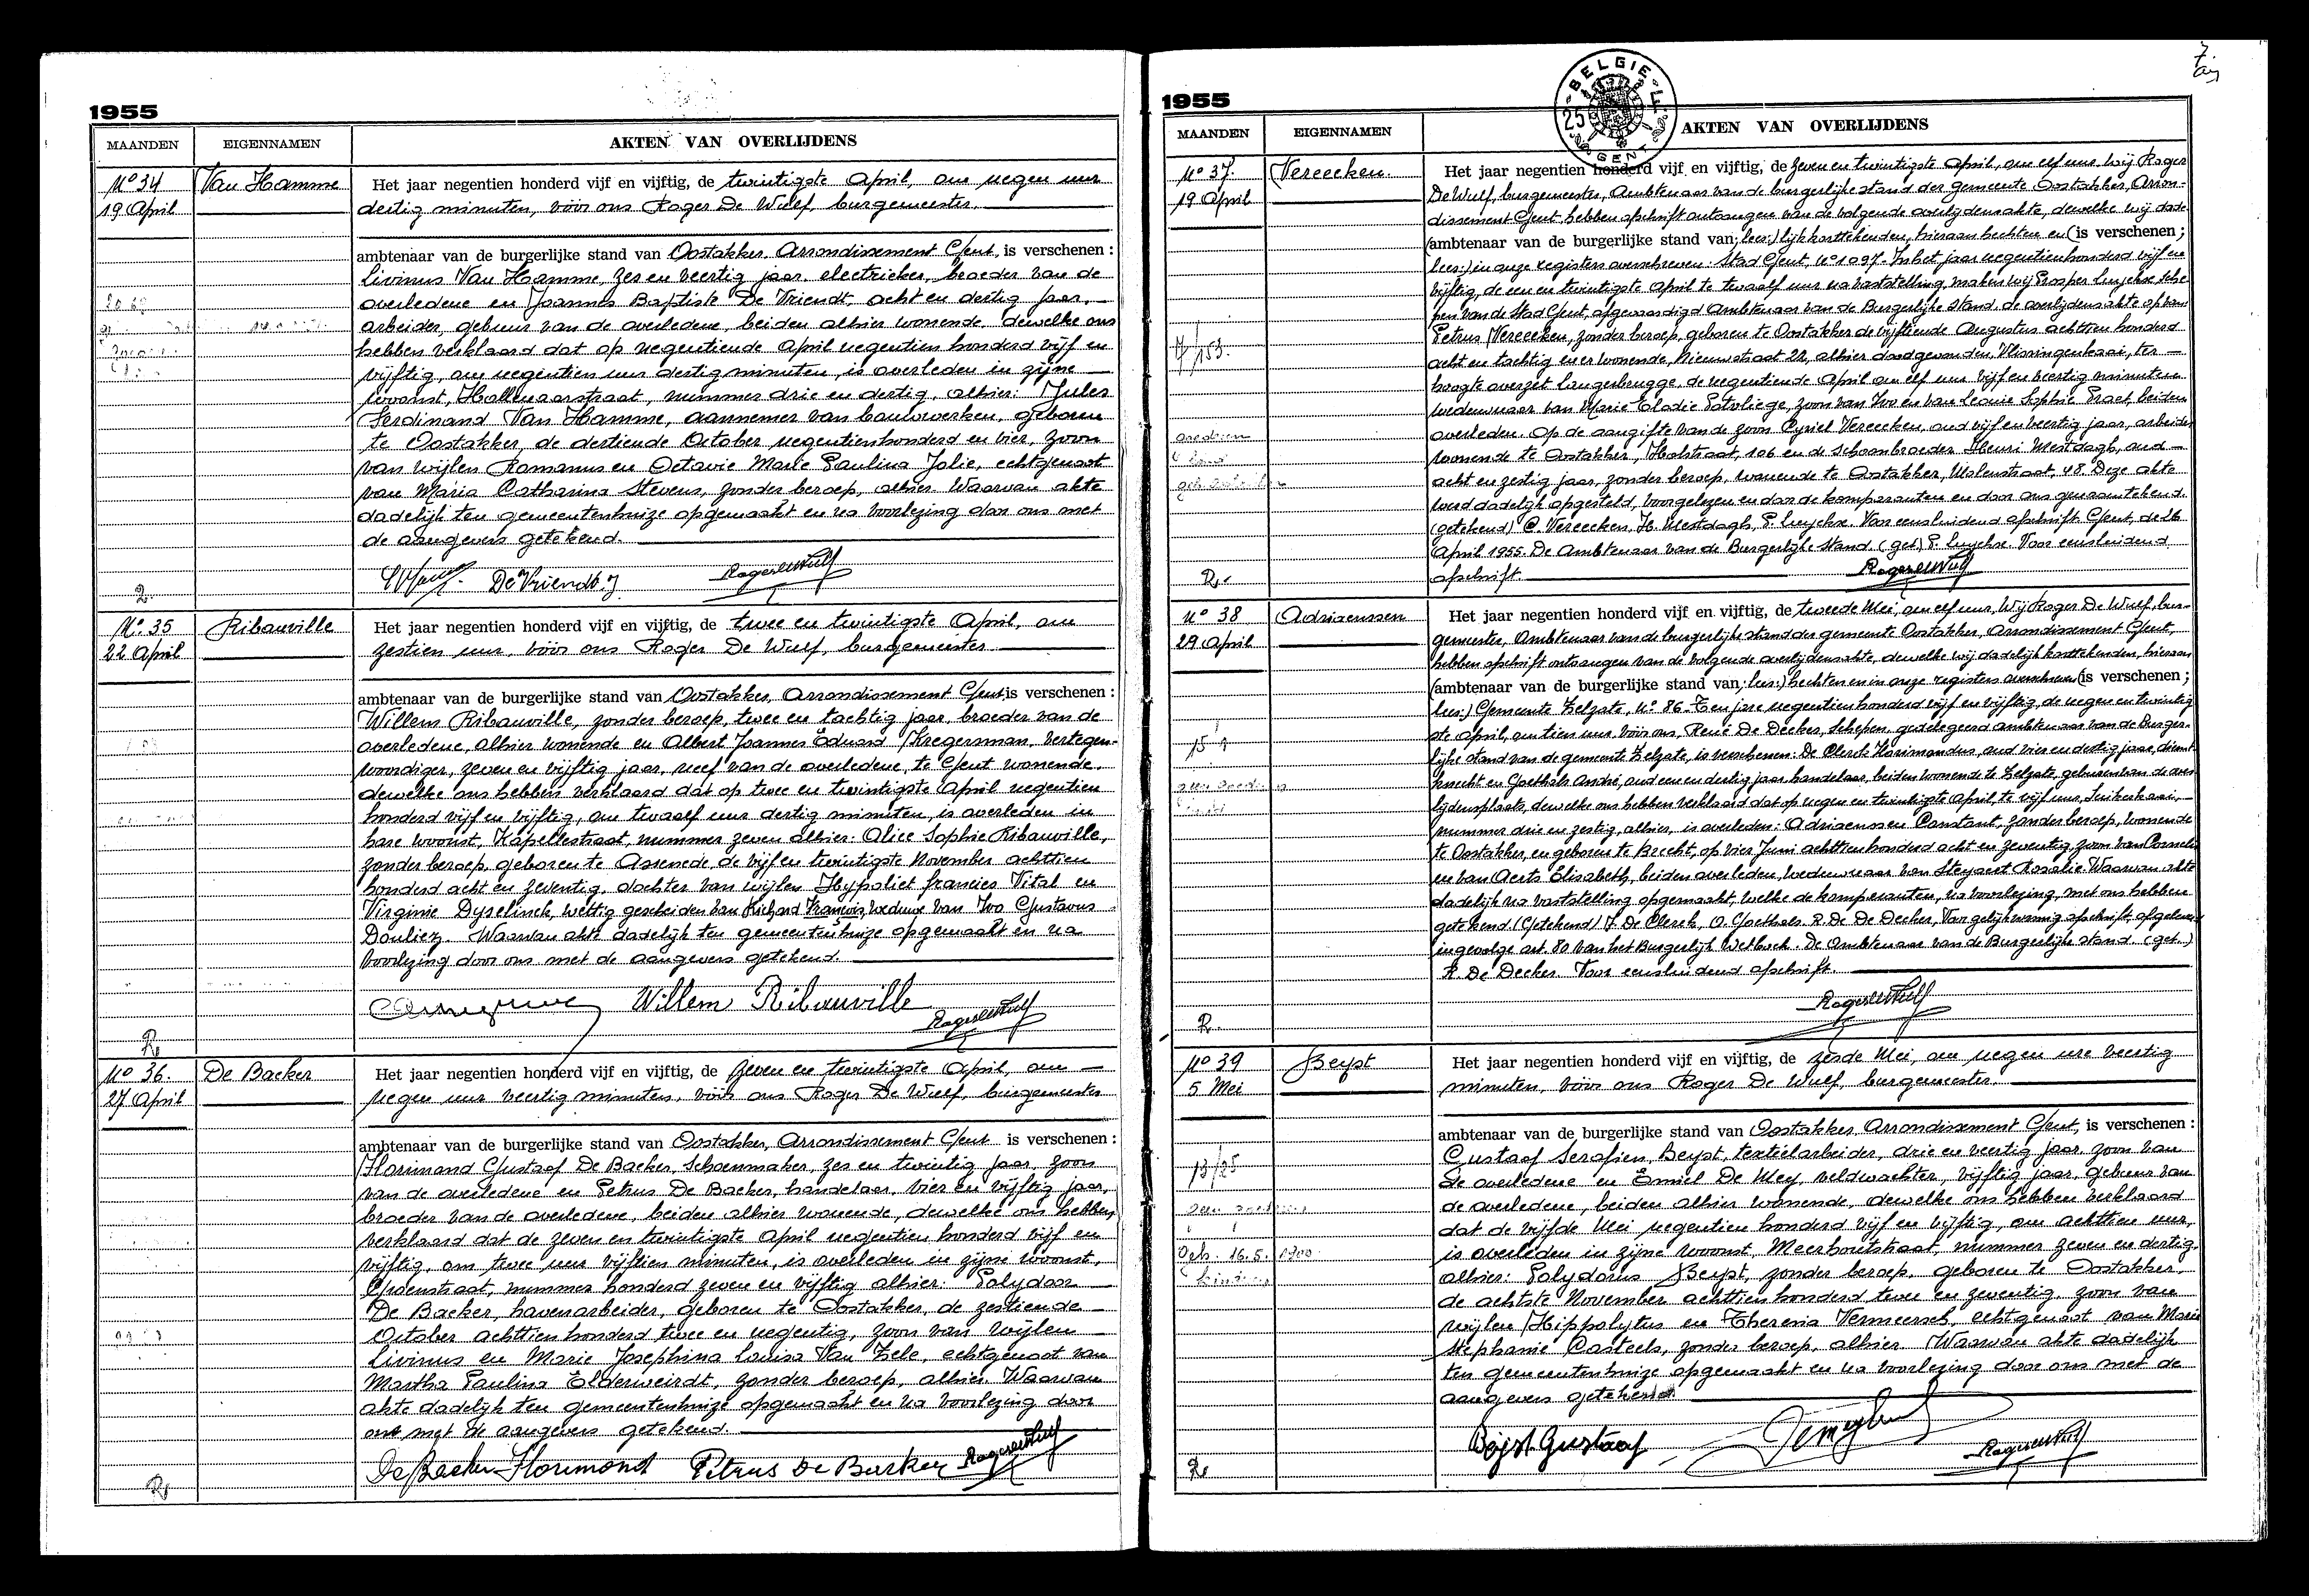 1955
MAANDEN EIGENNAMEN AKTEN VAN OVERLIJDENS
No 34 Van Hamme
19 April
Het jaar negentien honderd vijf en vijftig, de twintigste April, om negen uur
dertig minuten, vóór ons Roger De Wulf, burgemeester
ambtenaar van de burgerlijke stand van Oostakker, Arrondissement Gent, is verschenen :
Livinus Van Hamme, zes en veertig jaar, electrieker, broeder van de
overledene en Joannes Baptiste De Vriendt, acht en dertig jaar,
arbeider, gebuur van de overledene, beiden alhier wonende, dewelke ons
hebben verklaard dat op negentiende April negentien honderd vijf en
vijftig, om negentien uur dertig minuten, is overleden in zijne
woonst, Hollenaarstraat, nummer drie en dertig, alhier: Jules
Ferdinand Van Hamme, aannemer van bouwwerken, geboren
te Oostakker, de dertiende October negentienhonderd en vier, zoon
van wijlen Romanus en Octavie Marie Paulina Jolie, echtgenoot
van Maria Catharina Stevens, zonder beroep, alhier. Waarvan akte
dadelijk ten gemeentenhuize opgemaakt en na voorlezing door ons met
de aangevers getekend.
De Vriendt. J RogerdeWulf
No 35 Ribauville
22 April
Het jaar negentien honderd vijf en vijftig, de twee en twintigste April, om
zestien uur, vóór ons Roger De Wulf, burgemeester
ambtenaar van de burgerlijke stand van Oostakker, Arrondissement Gent, is verschenen :
Willem Ribauville, zonder beroep, twee en tachtig jaar, broeder van de
overledene, alhier wonende en Albert Joannes Eduard Kregersman, vertegen-
woordiger, zeven en vijftig jaar, neef van de overledene, te Gent wonende,
dewelke ons hebben verklaard dat op twee en twintigste April negentien
honderd vijf en vijftig, om twaalf uur dertig minuten, is overleden in
hare woonst, Kapellestraat, nummer zeven alhier: Alice Sophie Ribauville,
zonder beroep, geboren te Assenede, de vijf en twintigste November achttien
honderd acht en zeventig, dochter van wijlen Hypoliet Francies Vital en
Virginie Dyselinck, wettig gescheiden van Richard François, weduwe van Ivo Gustavus
Douliez. Waarvan akte dadelijk ten gemeentenhuize opgemaakt en na
voorlezing door ons met de aangevers getekend.
Willem Ribauville RogerdeWulf
No 36. De Backer
27 April
Het jaar negentien honderd vijf en vijftig, de zeven en twintigste April, om
negen uur veertig minuten, vóór ons Roger De Wulf, burgemeester
ambtenaar van de burgerlijke stand van Oostakker, Arrondissement Gent is verschenen :
Florimond Gustaaf De Backer, schoenmaker, zes en twintig jaar, zoon
van de overledene en Petrus De Backer, handelaar, vier en vijftig jaar,
broeder van de overledene, beiden alhier wonende, dewelke ons hebben
verklaard dat de zeven en twintigste April negentien honderd vijf en
vijftig, om twee uur vijftien minuten, is overleden in zijne woonst,
Groenstraat, nummer honderd zeven en vijftig alhier: Polydoor
De Backer, havenarbeider, geboren te Oostakker, de zestiende
October achttien honderd twee en negentig, zoon van wijlen
Livinus en Marie Josephina Louisa Van Zele, echtgenoot van
Martha Paulina Elderweirdt, zonder beroep, alhier. Waarvan
akte dadelijk ten gemeentenhuize opgemaakt en na voorlezing door
ons met de aangevers getekend.
De Backer Florimond Petrus De Backer RogerdeWulf
7.
1955
BELGIE 25 F GENT
MAANDEN EIGENNAMEN AKTEN VAN OVERLIJDENS
No 37. Vereecken.
19 April
Het jaar negentien honderd vijf en vijftig, de zeven en twintigste April, om elf uur wij Roger
De Wulf, burgemeester, Ambtenaar van de burgerlijke stand der gemeente Oostakker, Arron-
dissement Gent hebben afschrift ontvangen van de volgende overlijdensakte, dewelke wij dade-
(ambtenaar van de burgerlijke stand van; lees:) lijk kanttekenden, hieraan hechten en (is verschenen;
lees:) in onze registers overschreven: Stad Gent No 1097. In het jaar negentienhonderd vijf en
vijftig, de een en twintigste April te twaalf uur na vaststelling, maken wij Prosper Luyckx, Sche-
pen van de Stad Gent, afgevaardigd Ambtenaar van de Burgerlijke Stand, de overlijdensakte op van
Petrus Vereecken, zonder beroep, geboren te Oostakker de vijftiende Augustus achttien honderd
acht en tachtig en er wonende, Nieuwstraat 22, alhier dood gevonden, Vlissingenkaai, ter
hoogte overzet Langerbrugge, de negentiende April om elf uur vijf en veertig minuten
weduwnaar van Marie Elodie Potvliege, zoon van Ivo en van Leonie Sophie Praet, beiden
overleden. Op de aangifte van de zoon Cyriel Vereecken, oud vijf en veertig jaar, arbeider
wonende te Oostakker, Holstraat, 106 en de schoonbroeder Henri Westdagh, oud
acht en zestig jaar, zonder beroep, wonende te Oostakker, Molenstraat, 48. Deze akte
werd dadelijk opgesteld, voorgelezen en door de komparanten en door ons genaamtekend.
(Getekend) C. Vereecken, H. Westdagh, P. Luyckx. Voor eensluidend afschrift. Gent, de 26
April 1955. De Ambtenaar van de Burgerlijke Stand. (get.) P. Luyckx. Voor eensluidend
afschrift. RogerdeWulf
No 38 Adriaenssen
29 April
Het jaar negentien honderd vijf en vijftig, de tweede Mei, om elf uur, Wij Roger De Wulf, bur-
gemeester, Ambtenaar van de burgerlijke stand der gemeente Oostakker, Arrondissement Gent,
hebben afschrift ontvangen van de volgende overlijdensakte, dewelke wij dadelijk kanttekenden, hieraan
(ambtenaar van de burgerlijke stand van; lees:) hechten en in onze registers overschreven (is verschenen;
lees:) Gemeente Zelzate, No 86. Ten jare negentienhonderd vijf en vijftig, de negen en twintig
ste April, om tien uur, vóór ons, René De Decker, Schepen, gedelegeerd ambtenaar van de Burger-
lijke stand van de gemeente Zelzate, is verschenen: De Clerck Florimondus, oud vier en dertig jaar, dienst
knecht en Goethals André, oud een en dertig jaar handelaar, beiden wonende te Zelzate, geburen van de over
lijdensplaats, dewelke ons hebben verklaard dat op negen en twintigste April, te vijf uur, Suikerkaai,
nummer drie en zestig, alhier, is overleden: Adriaenssen Constant, zonder beroep, wonende
te Oostakker, en geboren te Brecht, op vier Juni achttienhonderd acht en zeventig, zoon van Cornelis
en van Aerts Elisabeth, beiden overleden, weduwnaar van Steyaert Rosalie. Waarvan akte
dadelijk na vaststelling opgemaakt, welke de komparanten, na voorlezing, met ons hebben
getekend (Getekend) F. De Clerck, A. Goethals. R. De De Decker, Voor gelijkvormig afschrift, afgeleverd
ingevolge art. 80 van het Burgerlijk Wetboek. De Ambtenaar van de Burgerlijke stand (get.)
R. De Decker. Voor eensluidend afschrift.
RogerdeWulf
No 39 Beyst
5 Mei
Het jaar negentien honderd vijf en vijftig, de zesde Mei, om negen ure veertig
minuten, vóór ons Roger De Wulf, burgemeester.
ambtenaar van de burgerlijke stand van Oostakker, Arrondissement Gent, is verschenen :
Gustaaf Serafien, Beyst, textielarbeider, drie en veertig jaar, zoon van
de overledene en Emiel De Mey, veldwachter, vijftig jaar, gebuur van
de overledene, beiden alhier wonende, dewelke ons hebben verklaard
dat de vijfde Mei negentien honderd vijf en vijftig, om achttien uur,
is overleden in zijne woonst, Meerhoutstraat, nummer zeven en dertig,
Geb. 16.5.1900.
alhier: Polydorus Beyst, zonder beroep, geboren te Oostakker,
de achtste November achttien honderd twee en zeventig, zoon van
wijlen Hippolytus en Theresia Vermeersch, echtgenoot van Marie
Stephanie Casteels, zonder beroep, alhier. Waarvan akte dadelijk
ten gemeentenhuize opgemaakt en na voorlezing door ons met de
aangevers getekend.
Beyst Gustaaf RogerdeWulf